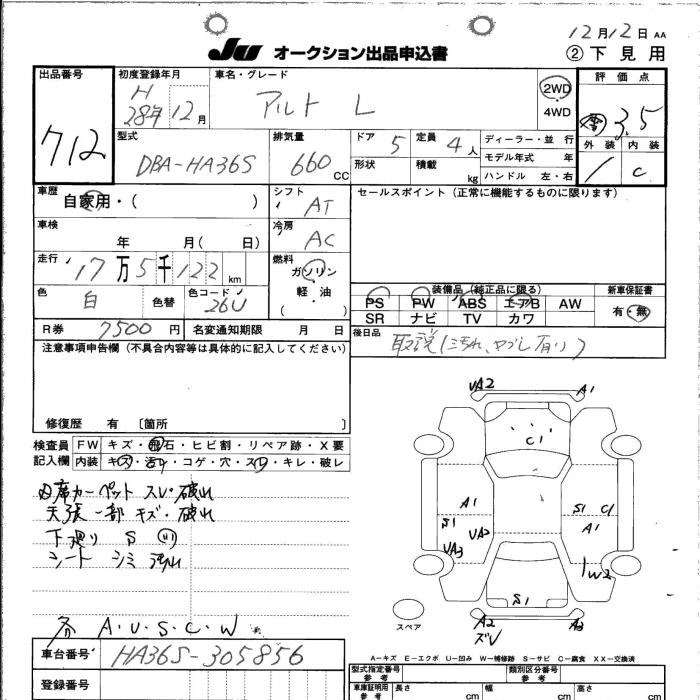 12月12日 AA
JU オークション出品申込書
② 下見用
出品番号
712
初度登録年月
H
28年 12月
車名・グレード
アルト L
2WD
4WD
評価点
3.5
外装 内装
1 C
型式
DBA-HA36S
排気量
660 CC
ドア 5
定員 4人
形状
積載 kg
ディーラー・並 行
モデル年式 年
ハンドル 左・右
車歴
自家用・( )
シフト
AT
セールスポイント (正常に機能するものに限ります)
車検
年 月( 日)
冷房
AC
走行
17万5千122 km
燃料
ガソリン
軽・油
( )
色
白
色替
色コード
26U
装備品 (純正品に限る)
PS PW ABS エアB AW
SR ナビ TV カワ
新車保証書
有・無
R券 7500 円
名変通知期限 月 日
後日品
取説(汚れ、ヤブレ有り)
注意事項申告欄 (不具合内容等は具体的に記入してください)
修復歴 有 〔箇所 〕
検査員
記入欄
FW キズ・飛石・ヒビ割・リペア跡・X要
内装 キズ・汚レ・コゲ・穴・スレ・キレ・破レ
D席カーペット スレ・破れ
天張一部 キズ・破れ
下廻り S
シート シミ 汚れ
各 A・U・S・C・W
UA2
A1
C1
A1
S1
UA2
UA3
S1
C1
A1
W2
S1
A2
ズレ
A3
スペア
A−キズ E−エクボ U−凹み W−補修跡 S−サビ C−腐食 XX−交換済
車台番号
HA36S-305856
登録番号
型式指定番号
参考
類別区分番号
参考
車庫証明用
参考
長さ cm
幅 cm
高さ cm